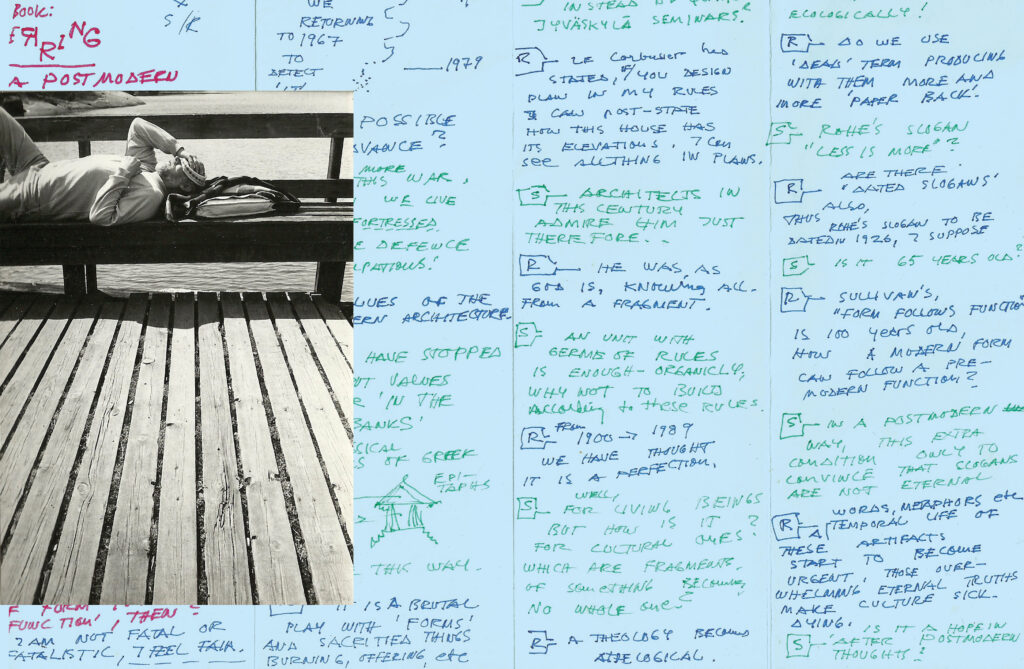 BOOK:
A POSTMODERN
FUNCTION', THEN?
I AM NOT FATAL OR
FATALISTIC, I FEEL FAIR.
X
S/R
WE
RETURNING
TO 1967
TO
DETECT
'IT'
1979
POSSIBLE
ADVANCE?
MORE
THIS WAR.
WE LIVE
FORTRESSED
DEFENCE
VALUES OF THE
MODERN ARCHITECTURE.
HAVE STOPPED
NOT VALUES
IN THE
BANKS'
OF GREEK
EPI-
TAPHS
THIS WAY.
IT IS A BRUTAL
PLAY WITH 'FORMS'
AND SACRIFIED THINGS
BURNING, OFFERING, etc
INSTEAD OF
JYVÄSKYLÄ SEMINARS?
R LE Corbusier has
STATED, IF YOU DESIGN
PLAN IN MY RULES
I CAN POST-STATE
HOW THIS HOUSE HAS
ITS ELEVATIONS. I CAN
see ALL THING IN PLANS.
S ARCHITECTS IN
THIS CENTURY
ADMIRE HIM JUST
THEREFORE..
R HE WAS, AS
GOD IS, KNOWING ALL.
FROM A FRAGMENT.
S AN UNIT WITH
GERMS OF RULES
IS ENOUGH-ORGANICLY,
WHY NOT TO BUILD
According to these RULES.
R FROM 1900 → 1989
WE HAVE THOUGHT
IT IS A PERFECTION.
S WELL,
FOR LIVING BEINGS
BUT HOW IS IT?
FOR CULTURAL ONES?
WHICH ARE FRAGMENTS.
OF SOMETHING BECOMING
NO WHOLE ONE?
R A THEOLOGY BECOMES
ATHEOLOGICAL.
ECOLOGICALLY!
R DO WE USE
'DEAD' TERM PRODUCING
WITH THEM MORE AND
MORE 'PAPER BACK'.
S ROHE'S SLOGAN
"LESS IS MORE"?
R ARE THERE
"DATED SLOGANS'
ALSO,
THUS ROHE'S SLOGAN TO BE
DATED IN 1926, I SUPPOSE
S IS IT 65 YEARS OLD?
R SULLIVAN'S,
"FORM FOLLOWS FUNCTION
IS 100 YEARS OLD,
HOW A MODERN FORM
CAN FOLLOW A PRE-
MODERN FUNCTION?
S IN A POSTMODERN
WAY, THIS EXTRA
CONDITION ONLY TO
CONVINCE THAT SLOGANS
ARE NOT ETERNAL
R WORDS, METAPHORS etc
A TEMPORAL LIFE OF
THESE ARTIFACTS
START TO BECOME
URGENT, THOSE OVER-
WHELMING ETERNAL TRUTHS
MAKE CULTURE SICK.
DYING.
S IS IT A HOPE IN
'AFTER POSTMODERN
THOUGHTS?